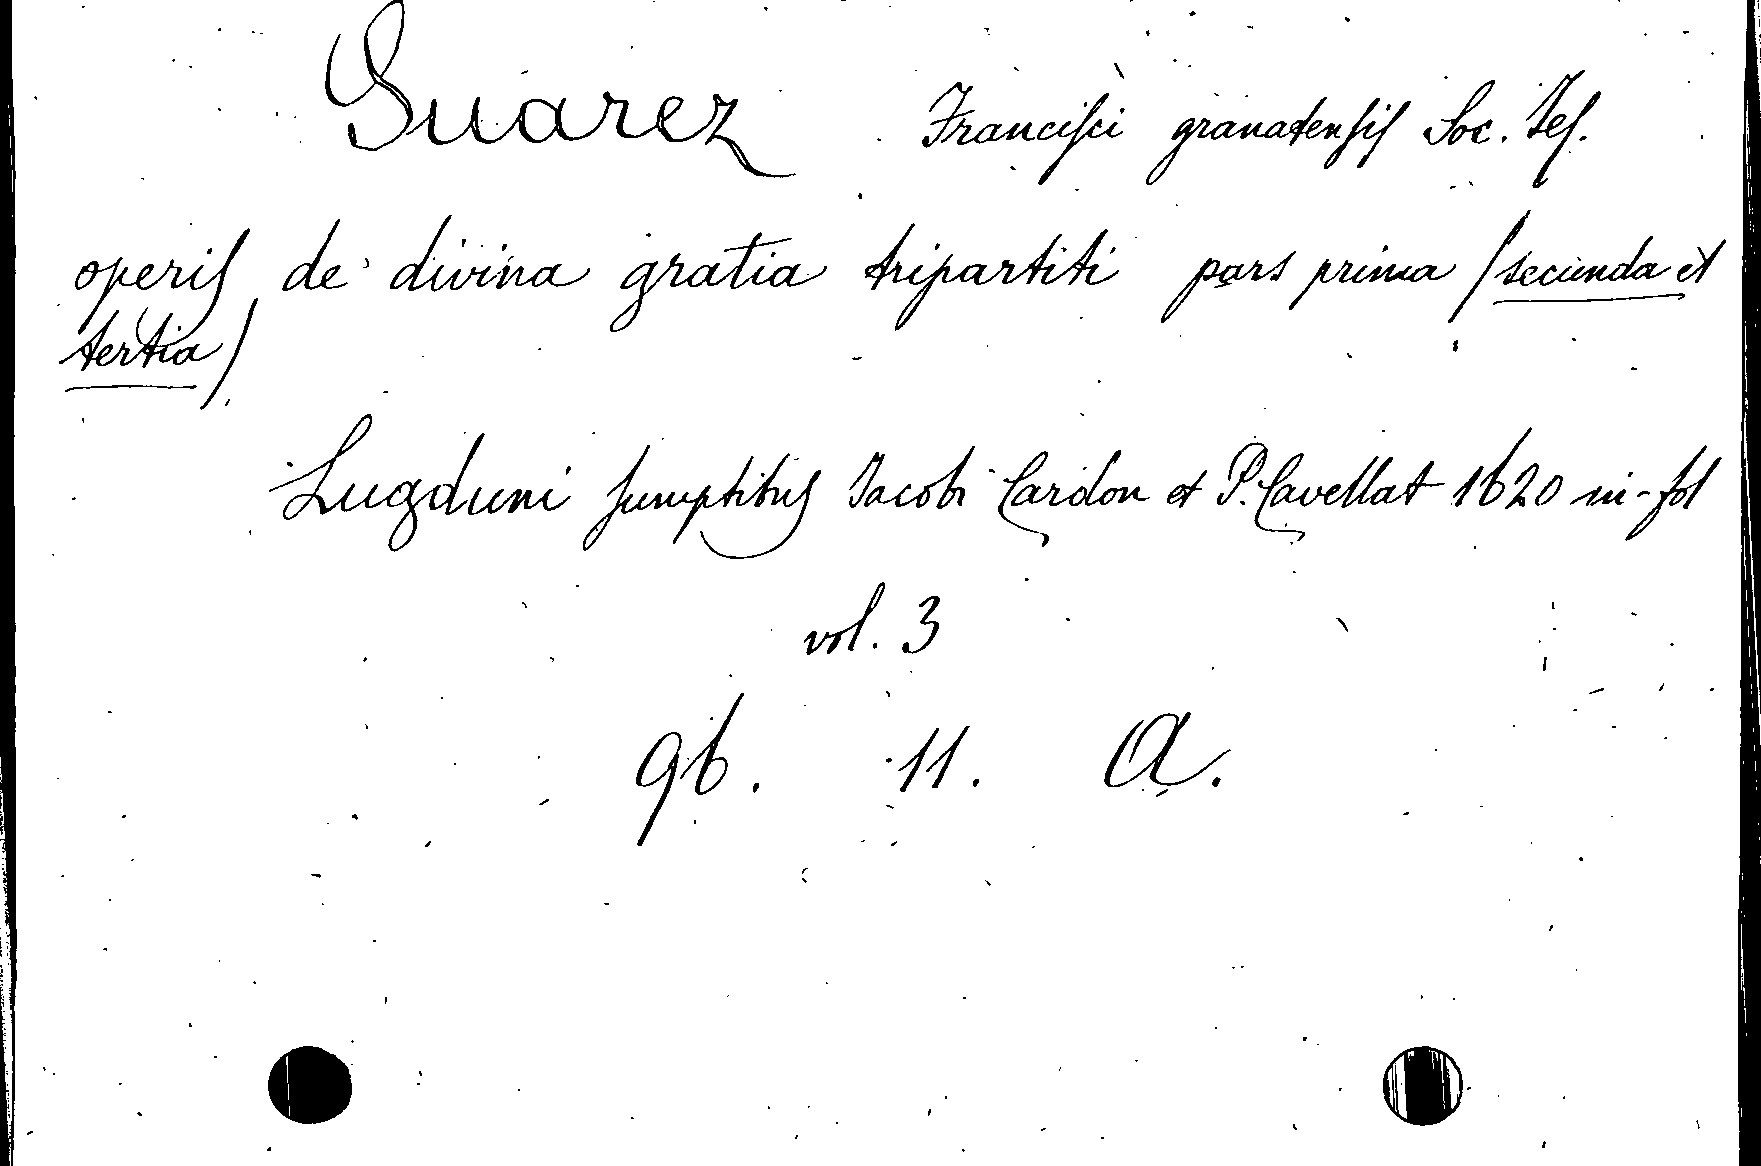 Suarez Francisci granatensis Soc. Jes.
operis de divina gratia tripartiti pars prima (secunda et
tertia)
Lugduni sumptibus Jacobi Cardon et P. Cavellat 1620 in-fol
vol. 3
96. 11. A.